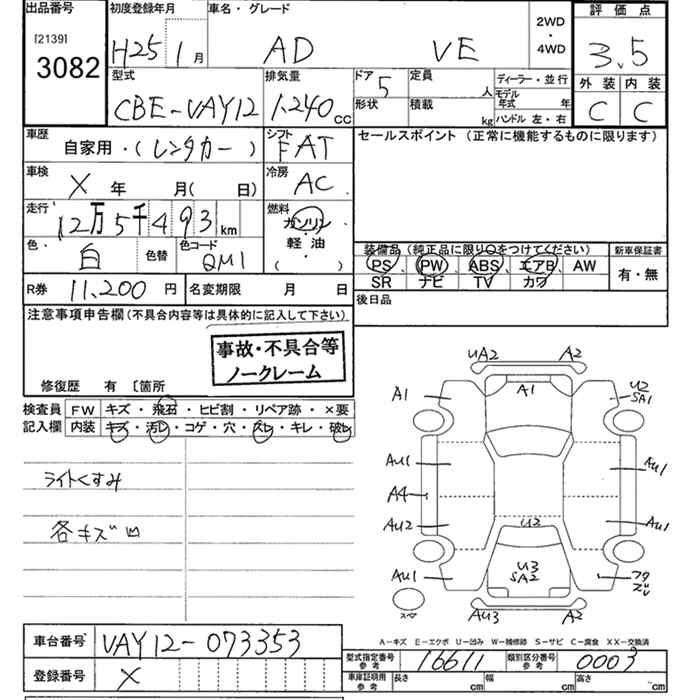 出品番号 初度登録年月 車名・グレード 評価点
[2139] 2WD
3082 H25 1月 AD VE ・ 3.5
4WD
型式 排気量 ドア 5 定員 人 ディーラー・並行 外装 内装
CBE-VAY12 1,240cc 形状 積載 kg モデル年式 年 C C
ハンドル 左・右
車歴 自家用・(レンタカー) シフト FAT セールスポイント (正常に機能するものに限ります)
車検 X 年 月( 日) 冷房 AC
走行 12万5千493km 燃料 ガソリン・
軽油・
( )
色・ 白 色替 色コード QM1 装備品(純正品に限り○をつけてください) 新車保証書
PS、PW、ABS、エアB、AW 有・無
SR ナビ TV カワ
R券 11,200円 名変期限 月 日 後日品
注意事項申告欄(不具合内容等は具体的に記入して下さい)
事故・不具合等
ノークレーム
修復歴 有 〔箇所
検査員 FW キズ・飛石・ヒビ割・リペア跡・×要
記入欄 内装 キズ・汚レ・コゲ・穴・スレ・キレ・破レ
ライトくすみ
各キズ凹
UA2 A2
A1 A1 U2
SA1
AU1 AU1
A4
AU2 U2 AU1
AU1 U3
SA2 フタ
スペ AU3 A2
A-キズ E-エクボ U-凹み W-補修跡 S-サビ C-腐食 XX-交換済
車台番号 VAY12-073353
型式指定番号 参考 16611 類別区分番号 参考 0003
登録番号 X 車庫証明用 参考 長さ cm 幅 cm 高さ cm